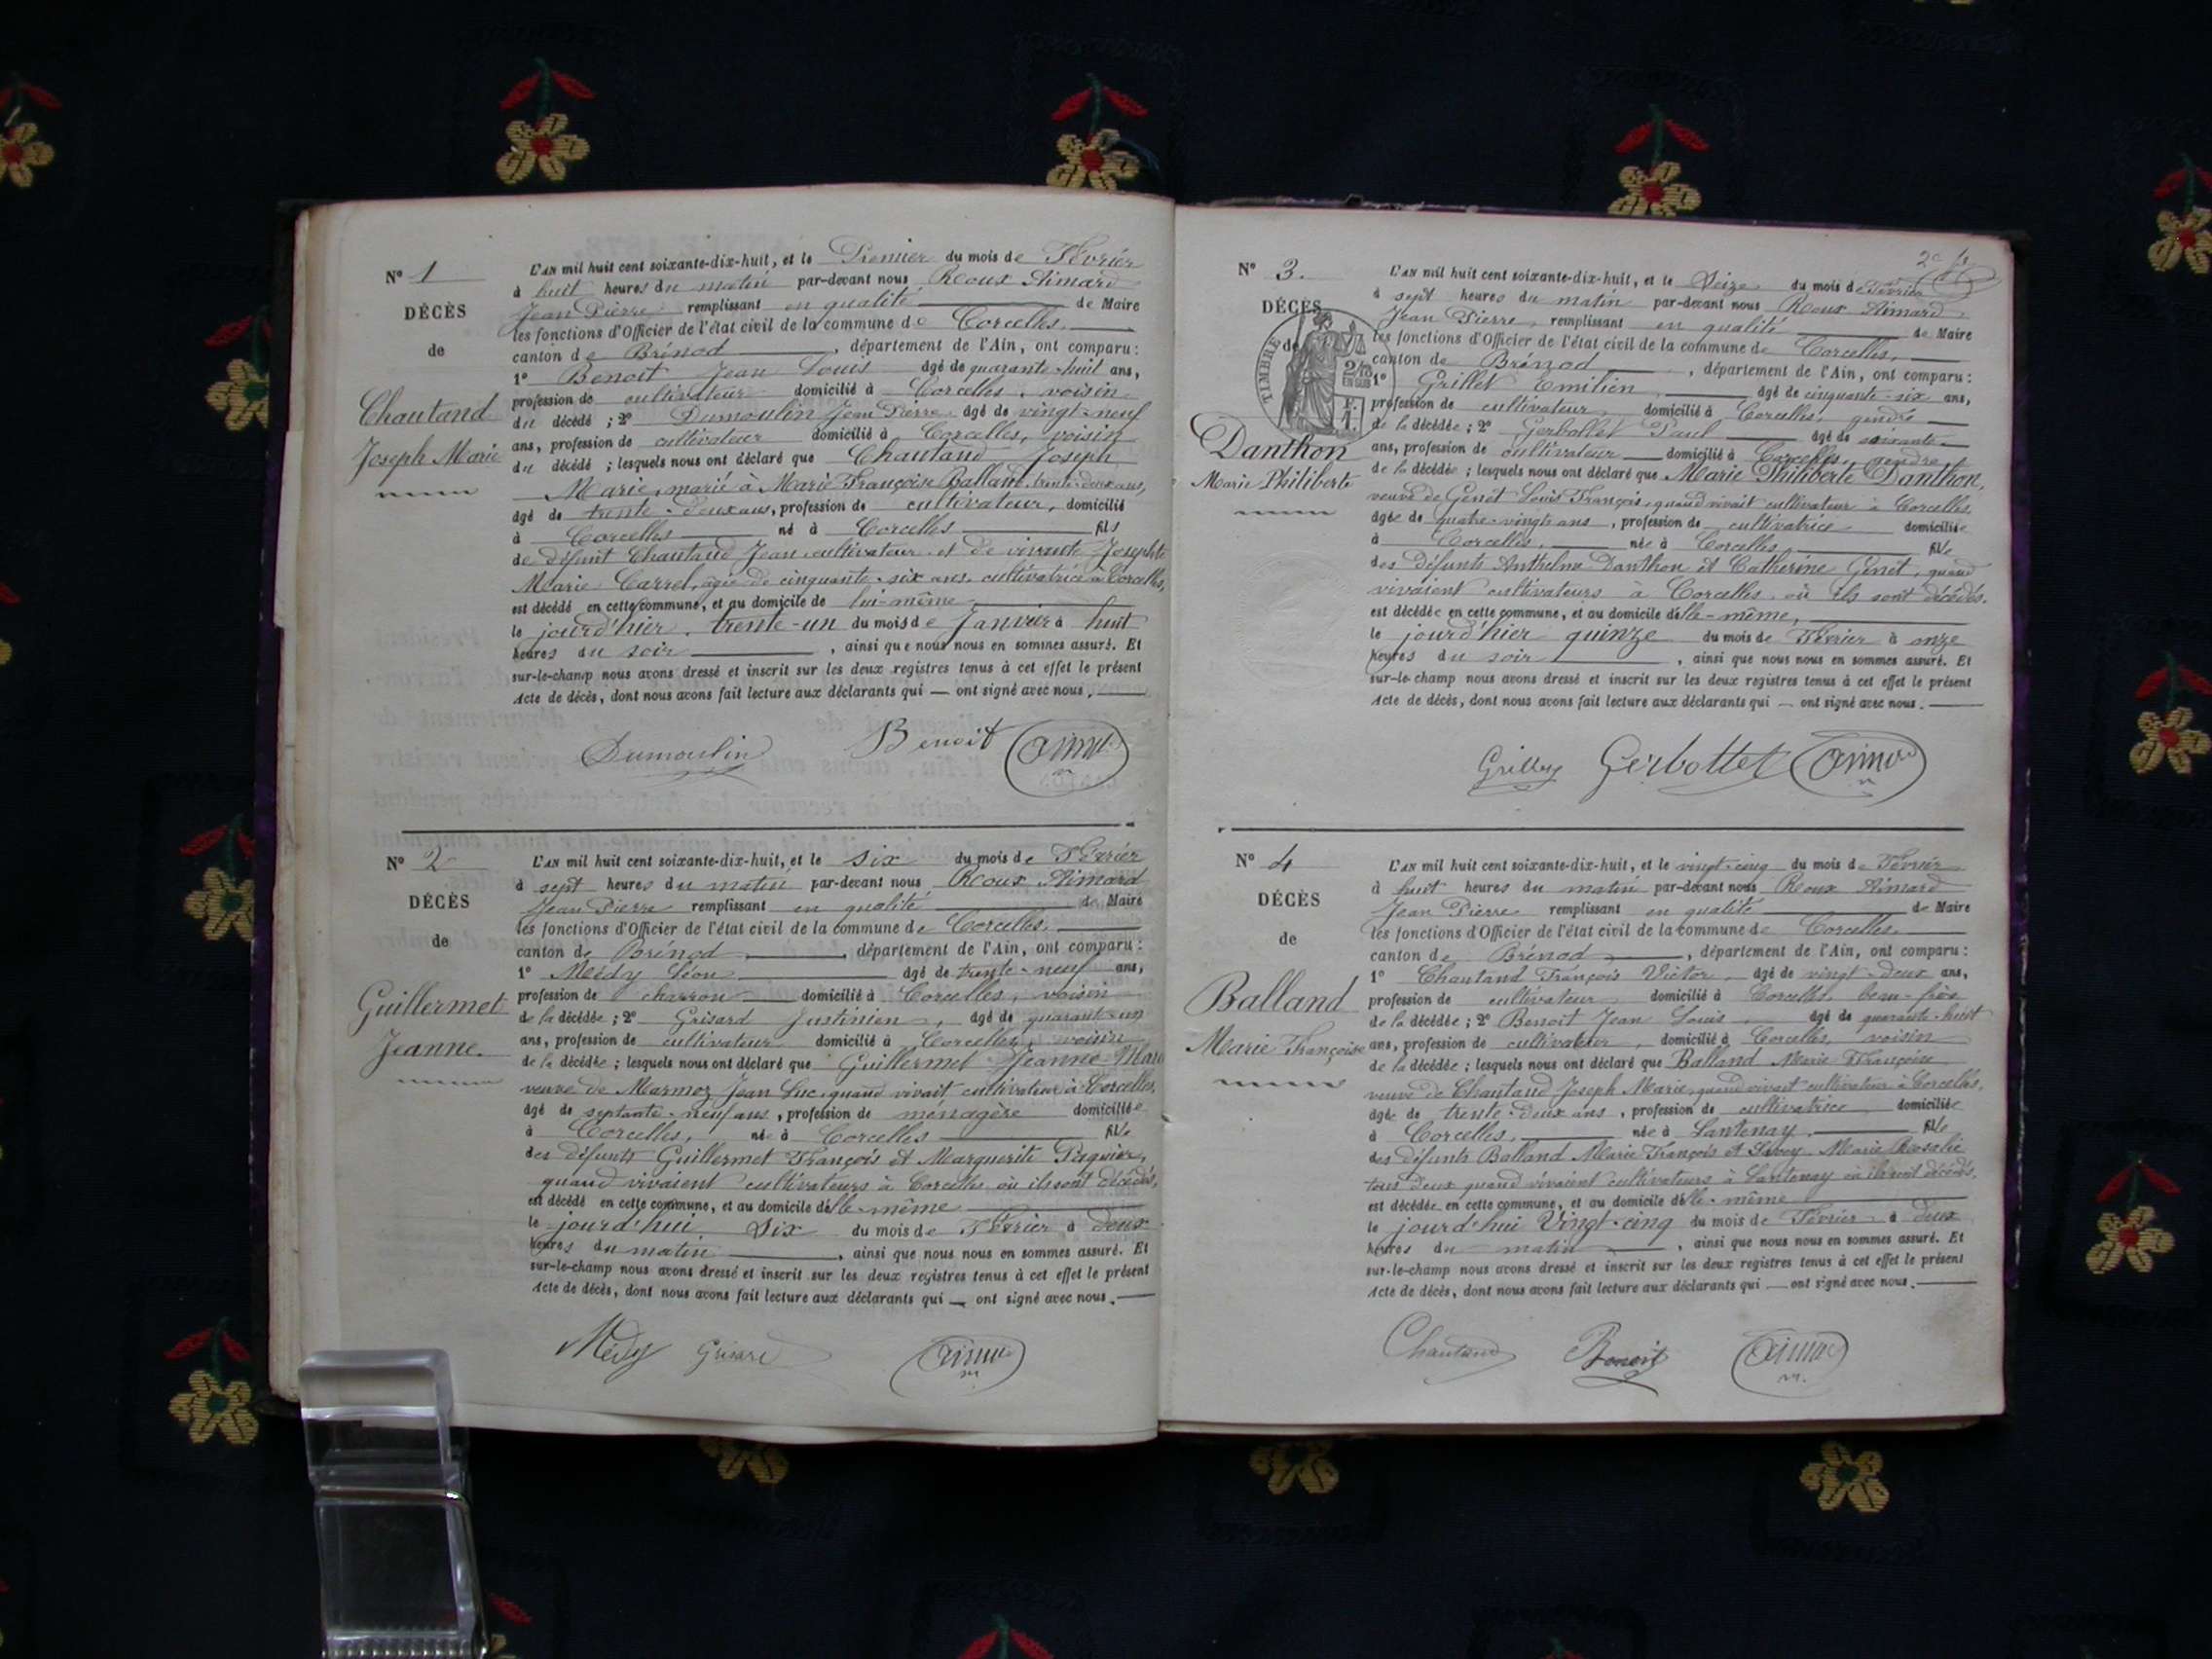 N° 1
DÉCÈS
de
Chautand
Joseph Marie
L'AN mil huit cent soixante-dix-huit, et le Premier du mois de Février
à huit heures du matin par-devant nous Roux Aimard
Jean Pierre remplissant en qualité de Maire
les fonctions d'Officier de l'état civil de la commune de Corcelles.
canton de Brénod, département de l'Ain, ont comparu:
1° Benoit Jean Louis âgé de quarante-huit ans,
profession de cultivateur domicilié à Corcelles, voisin
du décédé; 2° Dumoulin Jean Pierre âgé de vingt-neuf
ans, profession de cultivateur domicilié à Corcelles, voisin
du décédé; lesquels nous ont déclaré que Chautand Joseph
Marie, marié à Marie Françoise Balland, trente-deux ans,
âgé de trente-deux ans, profession de cultivateur, domicilié
à Corcelles né à Corcelles fils
de défunt Chautand Jean, cultivateur et de vivante Josephte
Marie Carrel, âgée de cinquante-six ans, cultivatrice à Corcelles,
est décédé en cette commune, et au domicile de lui-même
le jourd'hier, trente-un du mois de Janvier à huit
heures du soir, ainsi que nous nous en sommes assuré. Et
sur-le-champ nous avons dressé et inscrit sur les deux registres tenus à cet effet le présent
Acte de décès, dont nous avons fait lecture aux déclarants qui — ont signé avec nous.
Dumoulin Benoit Aimard
N° 2
DÉCÈS
de
Guillermet
Jeanne.
L'AN mil huit cent soixante-dix-huit, et le six du mois de Février
à sept heures du matin par-devant nous Roux Aimard
Jean Pierre remplissant en qualité de Maire
les fonctions d'Officier de l'état civil de la commune de Corcelles.
canton de Brénod, département de l'Ain, ont comparu:
1° Médy Léon âgé de trente-neuf ans,
profession de charron domicilié à Corcelles, voisin
de la décédée; 2° Grisard Justinien, âgé de quarante-un
ans, profession de cultivateur domicilié à Corcelles, voisin
de la décédée; lesquels nous ont déclaré que Guillermet Jeanne Marie
veuve de Marmoz Jean Luc, quand vivait cultivateur à Corcelles,
âgé de septante-neuf ans, profession de ménagère domiciliée
à Corcelles, née à Corcelles fille
des défunts Guillermet François et Marguerite
quand vivaient cultivateurs à Corcelles où ils sont décédés,
est décédé en cette commune, et au domicile d'elle-même
le jourd'hui Six du mois de Février à deux
heures du matin, ainsi que nous nous en sommes assuré. Et
sur-le-champ nous avons dressé et inscrit sur les deux registres tenus à cet effet le présent
Acte de décès, dont nous avons fait lecture aux déclarants qui — ont signé avec nous.
Médy Grisard Aimard
2e f
N° 3.
DÉCÈS
de
TIMBRE
2/10 EN SUS
Danthon
Marie Philiberte
L'AN mil huit cent soixante-dix-huit, et le Seize du mois de Février
à sept heures du matin par-devant nous Roux Aimard
Jean Pierre, remplissant en qualité de Maire
les fonctions d'Officier de l'état civil de la commune de Corcelles,
canton de Brénod, département de l'Ain, ont comparu:
1° Grillet Emilien, âgé de cinquante-six ans,
profession de cultivateur, domicilié à Corcelles, gendre
de la décédée; 2° Gerbollet Paul âgé de soixante
ans, profession de cultivateur domicilié à Corcelles, gendre
de la décédée; lesquels nous ont déclaré que Marie Philiberte Danthon,
veuve de Genet Louis François, quand vivait cultivateur à Corcelles
âgée de quatre-vingts ans, profession de cultivatrice domiciliée
à Corcelles, née à Corcelles, fille
des Défunts Anthelme Danthon et Catherine Genet, quand
vivaient cultivateurs à Corcelles où ils sont décédés.
est décédée en cette commune, et au domicile d'elle-même,
le jourd'hier quinze du mois de Février à onze
heures du soir, ainsi que nous nous en sommes assuré. Et
sur-le-champ nous avons dressé et inscrit sur les deux registres tenus à cet effet le présent
Acte de décès, dont nous avons fait lecture aux déclarants qui — ont signé avec nous.
Gerbollet Aimard
N° 4
DÉCÈS
de
Balland
Marie Françoise
L'AN mil huit cent soixante-dix-huit, et le vingt-cinq du mois de Février
à huit heures du matin par-devant nous Roux Aimard
Jean Pierre remplissant en qualité de Maire
les fonctions d'Officier de l'état civil de la commune de Corcelles.
canton de Brénod, département de l'Ain, ont comparu:
1° Chautand François Victor, âgé de vingt-deux ans,
profession de cultivateur domicilié à Corcelles, beau-frère
de la décédée; 2° Benoit Jean Louis, âgé de quarante-huit
ans, profession de cultivateur, domicilié à Corcelles, voisin
de la décédée; lesquels nous ont déclaré que Balland Marie Françoise
veuve de Chautand Joseph Marie, quand vivait cultivateur à Corcelles,
âgée de trente-deux ans, profession de cultivatrice domiciliée
à Corcelles, née à Lantenay, fille
des défunts Balland Marie François et Marie Roselie
tous deux quand vivaient cultivateurs à Lantenay où ils sont décédés.
est décédée en cette commune, et au domicile d'elle-même
le jourd'hui Vingt-cinq du mois de Février à deux
heures du matin, ainsi que nous nous en sommes assuré. Et
sur-le-champ nous avons dressé et inscrit sur les deux registres tenus à cet effet le présent
Acte de décès, dont nous avons fait lecture aux déclarants qui — ont signé avec nous.
Chautand Benoit Aimard